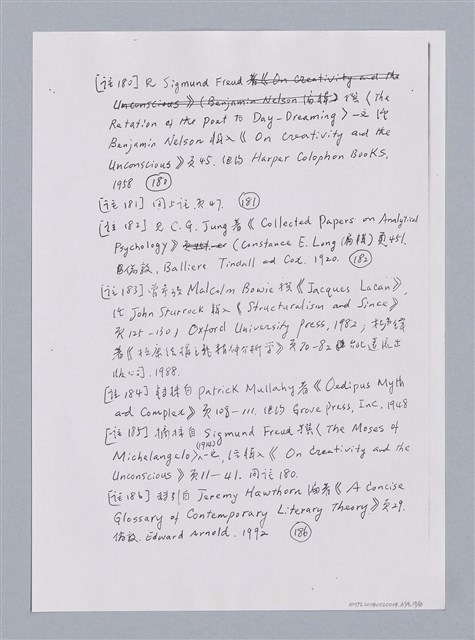 [註180] 見 Sigmund Freud 著《On Creativity and the
Unconscious》(Benjamin Nelson 編輯) 撰〈The
Relation of the Poet to Day-Dreaming〉一文 收
Benjamin Nelson 輯入《On Creativity and the
Unconscious》頁45. 紐約 Harper Colophon Books,
1958 (180)
[註181] 同上註頁47. (181)
[註182] 見 C.G. Jung 著《Collected Papers on Analytical
Psychology》(Constance E. Long 編輯) 頁451.
倫敦, Balliere Tindall and Cox. 1920. (182)
[註183] Malcolm Bowie 撰《Jacques Lacan》,
收 John Sturrock 輯入《Structuralism and Since》
頁125-130, Oxford University Press, 1982;
著《拉康結構主義精神分析學》頁70-82 遠流出
版公司. 1988.
[註184] 轉錄自 Patrick Mullahy 著《Oedipus Myth
and Complex》頁108-111. 紐約 Grove Press, Inc. 1948
[註185] 摘錄自 Sigmund Freud 撰〈The Moses of
Michelangelo〉(1914) 一文, 輯入《On Creativity and the
Unconscious》頁11-41. 同註180.
[註186] 轉引自 Jeremy Hawthorn 編著《A Concise
Glossary of Contemporary Literary Theory》頁29.
倫敦. Edward Arnold. 1992 (186)